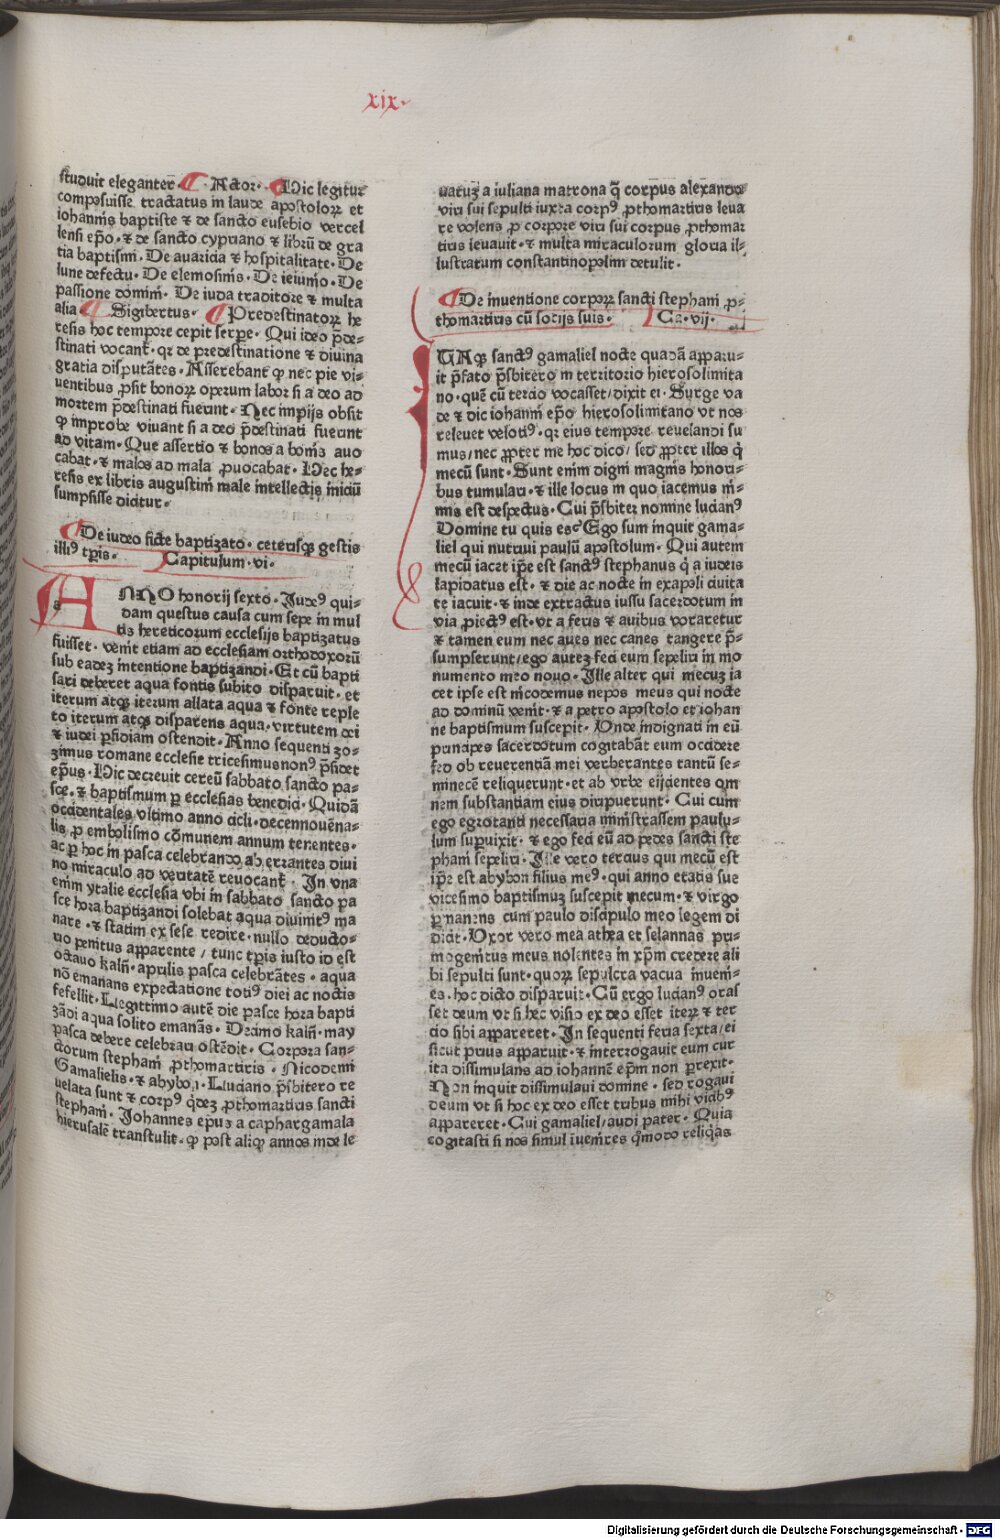 xix.
studuit eleganter. Actor. Hic legitur
composuisse tractatus in laude apostoloꝝ et
iohannis baptiste ⁊ de sancto eusebio vercel
lensi ep̄o. ⁊ de sancto cypriano ⁊ librū de gra
tia baptismi. De auaricia ⁊ hospitalitate. De
lune defectu. De elemosinis. De ieiunio. De
passione domini. De iuda traditore ⁊ multa
alia Sigibertus. Predestinatoꝝ he
resis hoc tempore cepit serpe. Qui ideo p̄de-
stinati vocant̄. qꝛ de predestinatione ⁊ diuina
gratia disputātes. Asserebant ꝙ nec pie vi-
uentibus ꝓsit bonoꝝ operum labor si a deo ad
mortem p̄destinati fuerint. Nec impijs obsit
ꝙ improbe viuant si a deo p̄destinati fuerint
ad vitam. Que assertio ⁊ bonos a bonis auo
cabat. ⁊ malos ad mala ꝓuocabat. Hec he-
resis ex libris augustini male intellectis iniciū
sumpsisse dicitur.
De iudeo ficte baptizato. ceterisqꝫ gestis
illiꝰ tp̄is. Capitulum. vi.
ANNO honorij sexto. Iudeꝰ qui-
dam questus causa cum sepe in mul
tis hereticorum ecclesijs baptizatus
fuisset. venit etiam ad ecclesiam orthodoxorū
sub eadeꝫ intentione baptizandi. Et cū bapti
sari deberet aqua fontis subito disparuit. et
iterum atqꝫ iterum allata aqua ⁊ fonte reple
to iterum atqꝫ disparens aqua. virtutem dei
⁊ iudei ꝑfidiam ostendit. Anno sequenti zo-
zimus romane ecclesie tricesimusnonꝰ p̄sidet
ep̄us. Hic decreuit cereū sabbato sancto pa-
sce. ⁊ baptismum ꝑ ecclesias benedici. Quidā
occidentales vltimo anno cicli. decennouēna-
lis ꝑ embolismo cōmunem annum tenentes.
ac ꝑ hoc in pasca celebrando ab errantes diui
no miraculo ad veritatē reuocant̄. In vna
enim ytalie ecclesia vbi in sabbato sancto pa
sce hora baptizandi solebat aqua diuinitꝰ ma
nare. ⁊ statim ex sese redire. nullo deducto-
rio penitus apparente / tunc tp̄is iusto id est
octauo kaln̄. aprilis pasca celebrātes. aqua
nō emanans expectatione totiꝰ diei ac noctis
fefellit. Llegittimo autē die pasce hora bapti
zādi aqua solito emanās. Decimo kaln̄. may
pasca debere celebrari ostēdit. Corpora san-
ctorum stephani ꝓthomartiris. Nicodemi
Gamalielis. ⁊ abybon. Luciano p̄sbitero re
uelata sunt ⁊ corpꝰ q̄deꝫ ꝓthomartiris sancti
stephani. Johannes ep̄us a caphargamala
hierusalē transtulit. ꝙ post aliqꝫ annos inde le
uatuꝫ a iuliana matrona q̄ corpus alexandri
viri sui sepulti iuxta corpꝰ ꝓthomartiris leua
re volens ꝓ corpore viri sui corpus ꝓthomar
tiris leuauit. ⁊ multa miraculorum gloria il-
lustratum constantinopolim detulit.
De inuentione corporꝝ sancti stephani ꝓ-
thomartiris cū socijs suis. Ca. vij.
UAqꝫ sanctꝰ gamaliel nocte quadā apparu-
it p̄fato p̄sbitero in territorio hierosolimita
no. quē cū tercio vocasset / dixit ei. Surge va
de ⁊ dic iohanni ep̄o hierosolimitano vt nos
releuet velotiꝰ. qꝛ eius tempore reuelandi su
mus / nec ꝓpter me hoc dico / sed ꝓpter illos q̄
mecū sunt. Sunt enim digni magnis honori-
bus tumulari. ⁊ ille locus in quo iacemus ni-
mis est despectus. Cui p̄sbiter nomine lucianꝰ
Domine tu quis es? Ego sum inquit gama-
liel qui nutriui paulū apostolum. Qui autem
mecū iacet ip̄e est sanctꝰ stephanus q̄ a iudeis
lapidatus est. ⁊ die ac nocte in exapoli ciuita
te iacuit. ⁊ inde extractus iussu sacerdotum in
via ꝓiectꝰ est. vt a feris ⁊ auibus voraretur
⁊ tamen eum nec aues nec canes tangere p̄-
sumpserunt / ego auteꝫ feci eum sepeliri in mo
numento meo nouo. Ille alter qui mecuꝫ ia
cet ipse est nicodemus nepos meus qui nocte
ad dominū venit. ⁊ a petro apostolo et iohan
ne baptismum suscepit. Vnde indignati in eū
principes sacerdotum cogitabāt eum occidere
sed ob reuerentiā mei verberantes tantū se-
minecē reliquerunt. et ab vrbe eijcientes om
nem substantiam eius diripuerunt. Cui cum
ego egrotanti necessaria ministrassem paulu-
lum suꝑuixit. ⁊ ego feci eū ad pedes sancti ste
phani sepeliri. Ille vero tercius qui mecū est
ip̄e est abybon filius meꝰ. qui anno etatis sue
vicesimo baptismuꝫ suscepit mecum. ⁊ virgo
ꝑmanens cum paulo discipulo meo legem di
dicit. Vxor vero mea athea et selannas pri-
mogenitus meus nolentes in xp̄m credere ali
bi sepulti sunt. quoꝝ sepulcra vacua inueni-
es. hoc dicto disparuit. Cū ergo lucianꝰ oras
set deum vt si hec visio ex deo esset iterꝝ ⁊ ter
cio sibi appareret. In sequenti feria sexta / ei
sicut prius apparuit. ⁊ interrogauit eum cur
ita dissimulans ad iohannē ep̄m non ꝑrexit.
Non inquit dissimulaui domine. sed rogaui
deum vt si hoc ex deo esset tribus mihi vicibꝰ
appareret. Cui gamaliel / audi pater. Quia
cogitasti si nos simul īuenires q̄modo reliq̄as
Digitalisierung gefördert durch die Deutsche Forschungsgemeinschaft - DFG